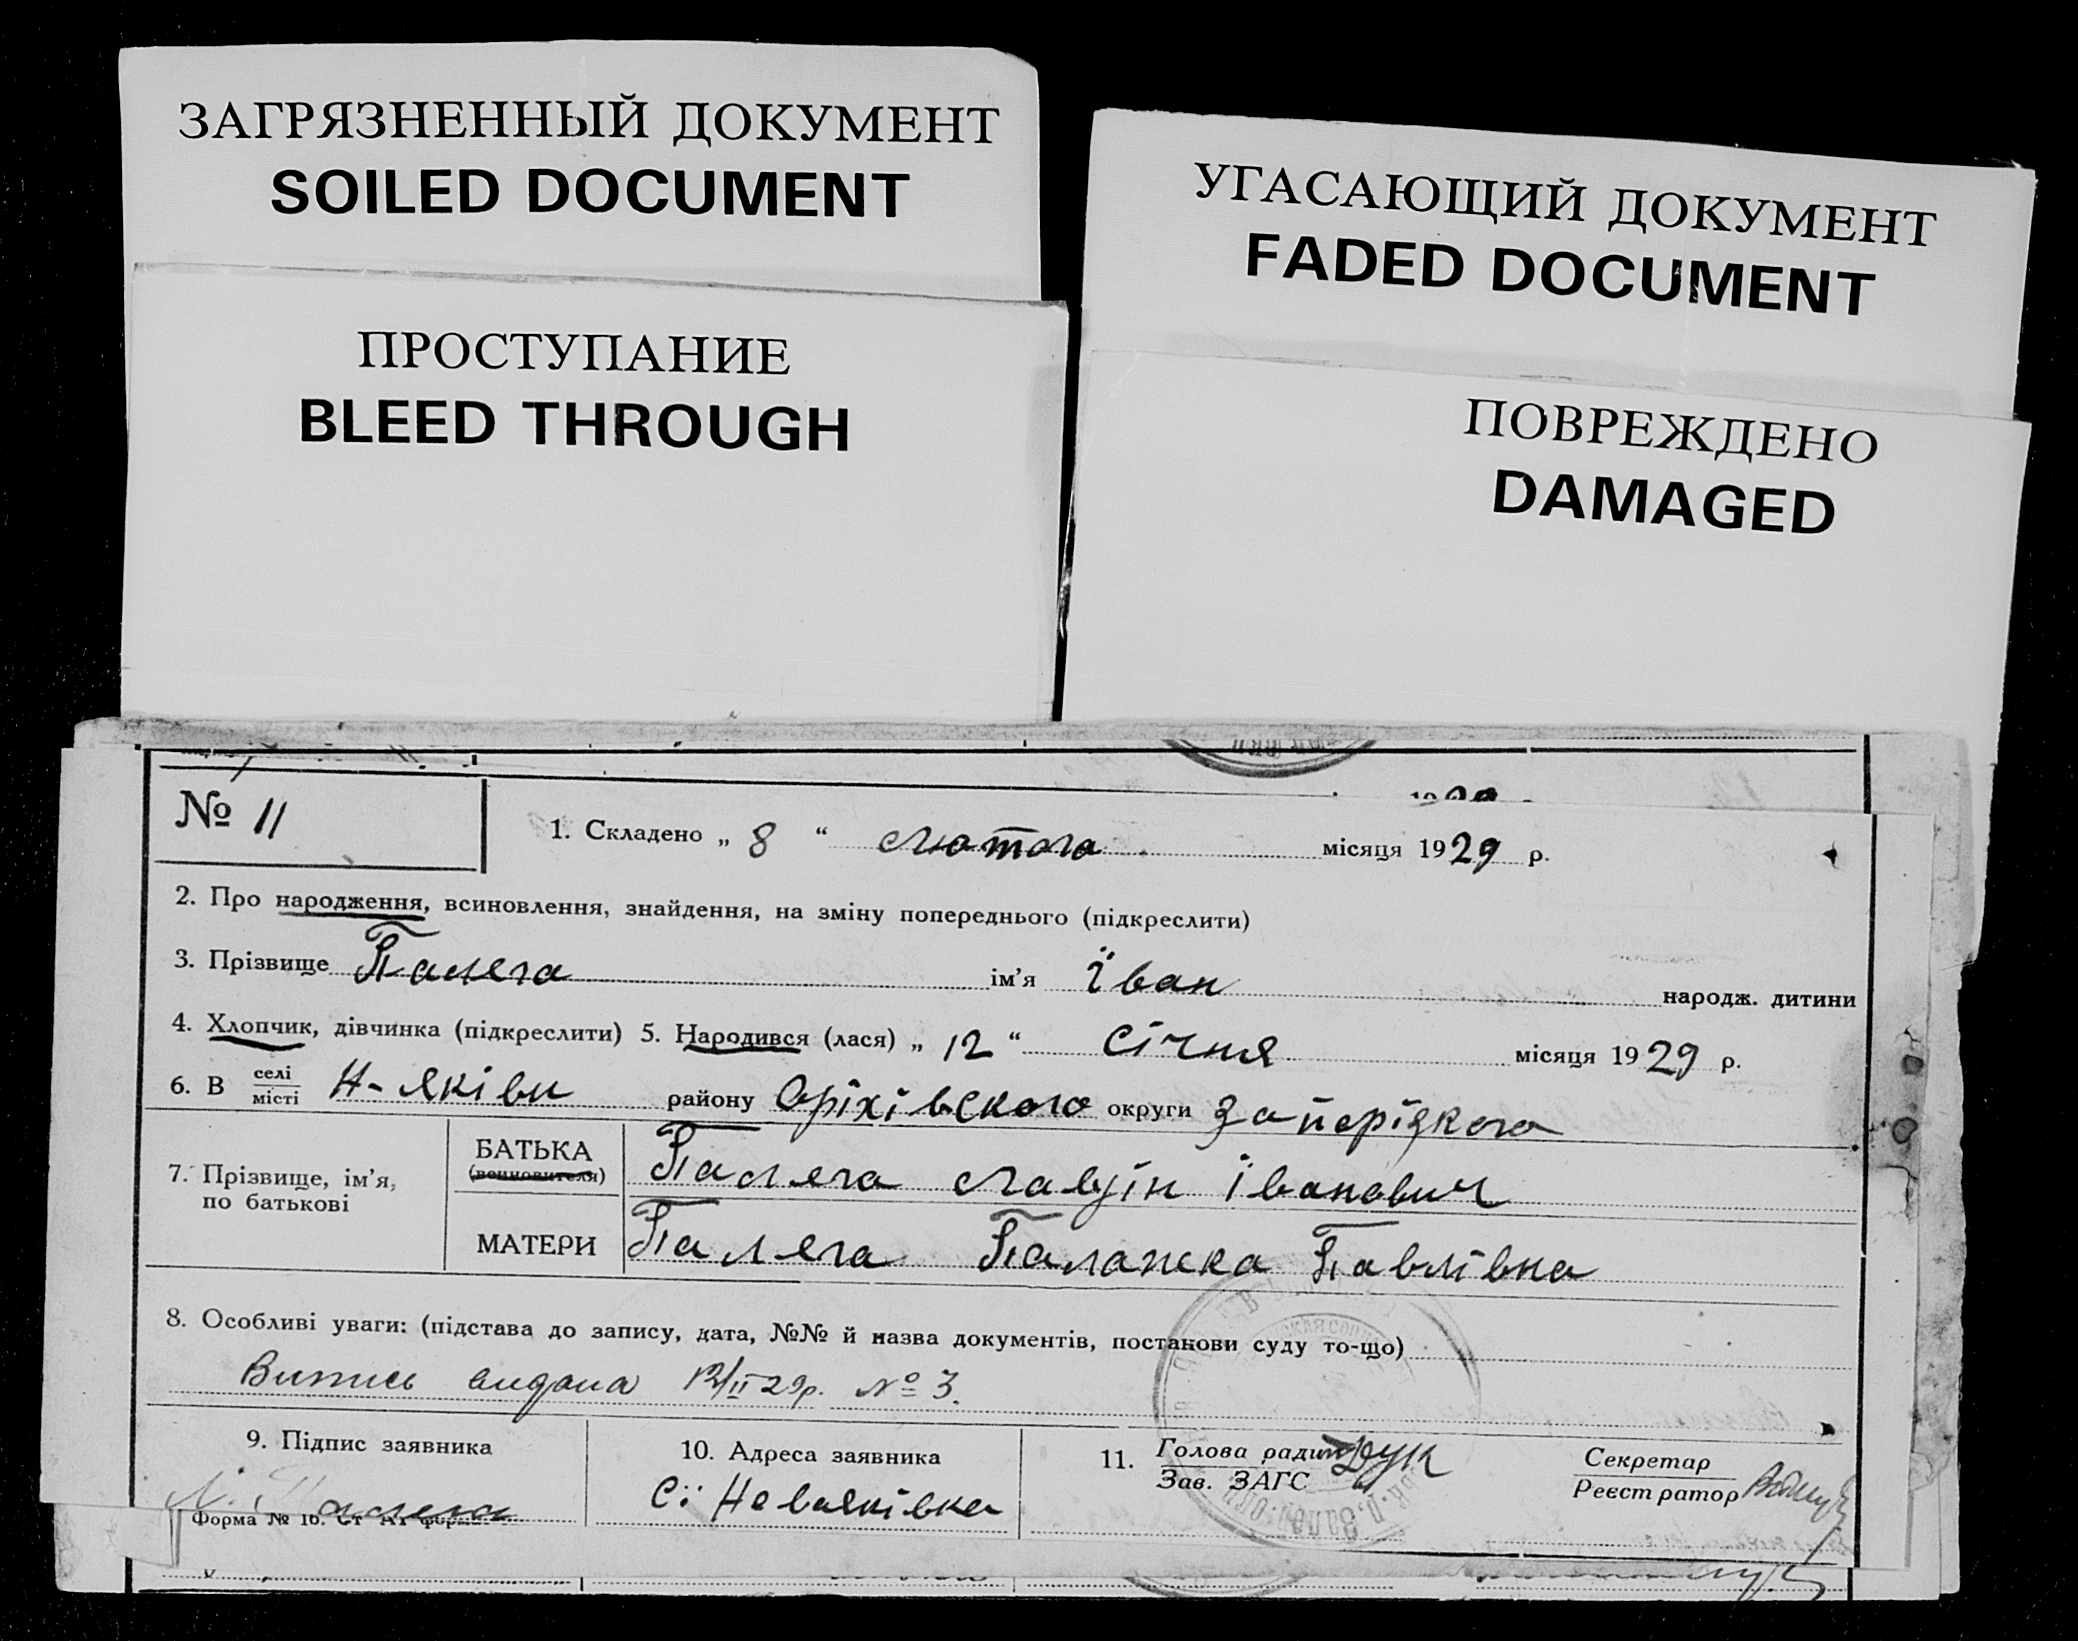 ЗАГРЯЗНЕННЫЙ ДОКУМЕНТ
SOILED DOCUMENT
УГАСАЮЩИЙ ДОКУМЕНТ
FADED DOCUMENT
ПРОСТУПАНИЕ
BLEED THROUGH
ПОВРЕЖДЕНО
DAMAGED
№ 11
1. Складено „ 8 “ лютого місяця 1929 р.
2. Про народження, всиновлення, знайдення, на зміну попереднього (підкреслити)
3. Прізвище Палега ім'я Їван народж. дитини
4. Хлопчик, дівчинка (підкреслити) 5. Народився (лася) „ 12 “ Січня місяця 1929 р.
6. В селі місті Н-Яківки району Оріхівського округи Запорізкого
7. Прізвище, ім'я, по батькові
БАТЬКА (всиновителя) Палега Іванович
МАТЕРИ Палега Палажка Павлівна
8. Особливі уваги: (підстава до запису, дата, №№ й назва документів, постанови суду то-що)
Випись видана 12/II 29р. № 3.
9. Підпис заявника
Палега
10. Адреса заявника
Новояківка
11. Голова ради
Зав. ЗАГС
Секретар
Реєстратор
Форма № 10.